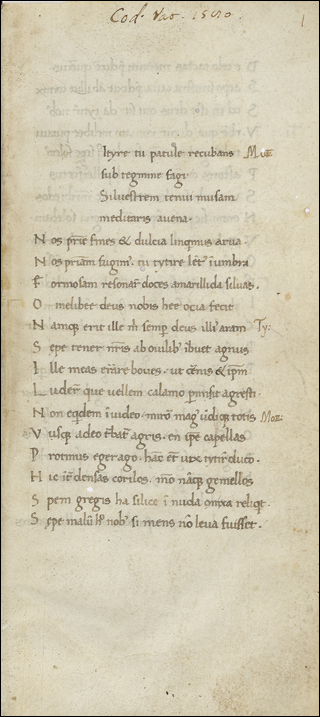 Cod. Vat. 1580. 1
Ityre tu patule recubans Mel
sub tegmine fagi
Silvestrem tenui musam
meditaris avena.
N os prie fines & dulcia linqmus arva.
N os priam fugim. tu tytire lent in umbra
F ormosam resonar doces amarillida silvas.
O melibee deus nobis hec ocia fecit
N amq; erit ille m semp deus illi aram Ty:
S epe tener nris ab ovilib ibuet agnus
I lle meas errare boves. ut cernis & ipm
L uder que vellem calamo pmisit agresti.
N on eqdem i video. miro mag undiq; totis Moe:
V usq; adeo tbat agris. en ipe capellas
P rotinus eger ago. hac et vix tytir duco.
H ic it densas corilos. mo naq; gemellos
S pem gregis ha silice i nuda conixa reliqt.
S epe malu h nob si mens no leva fuisset.